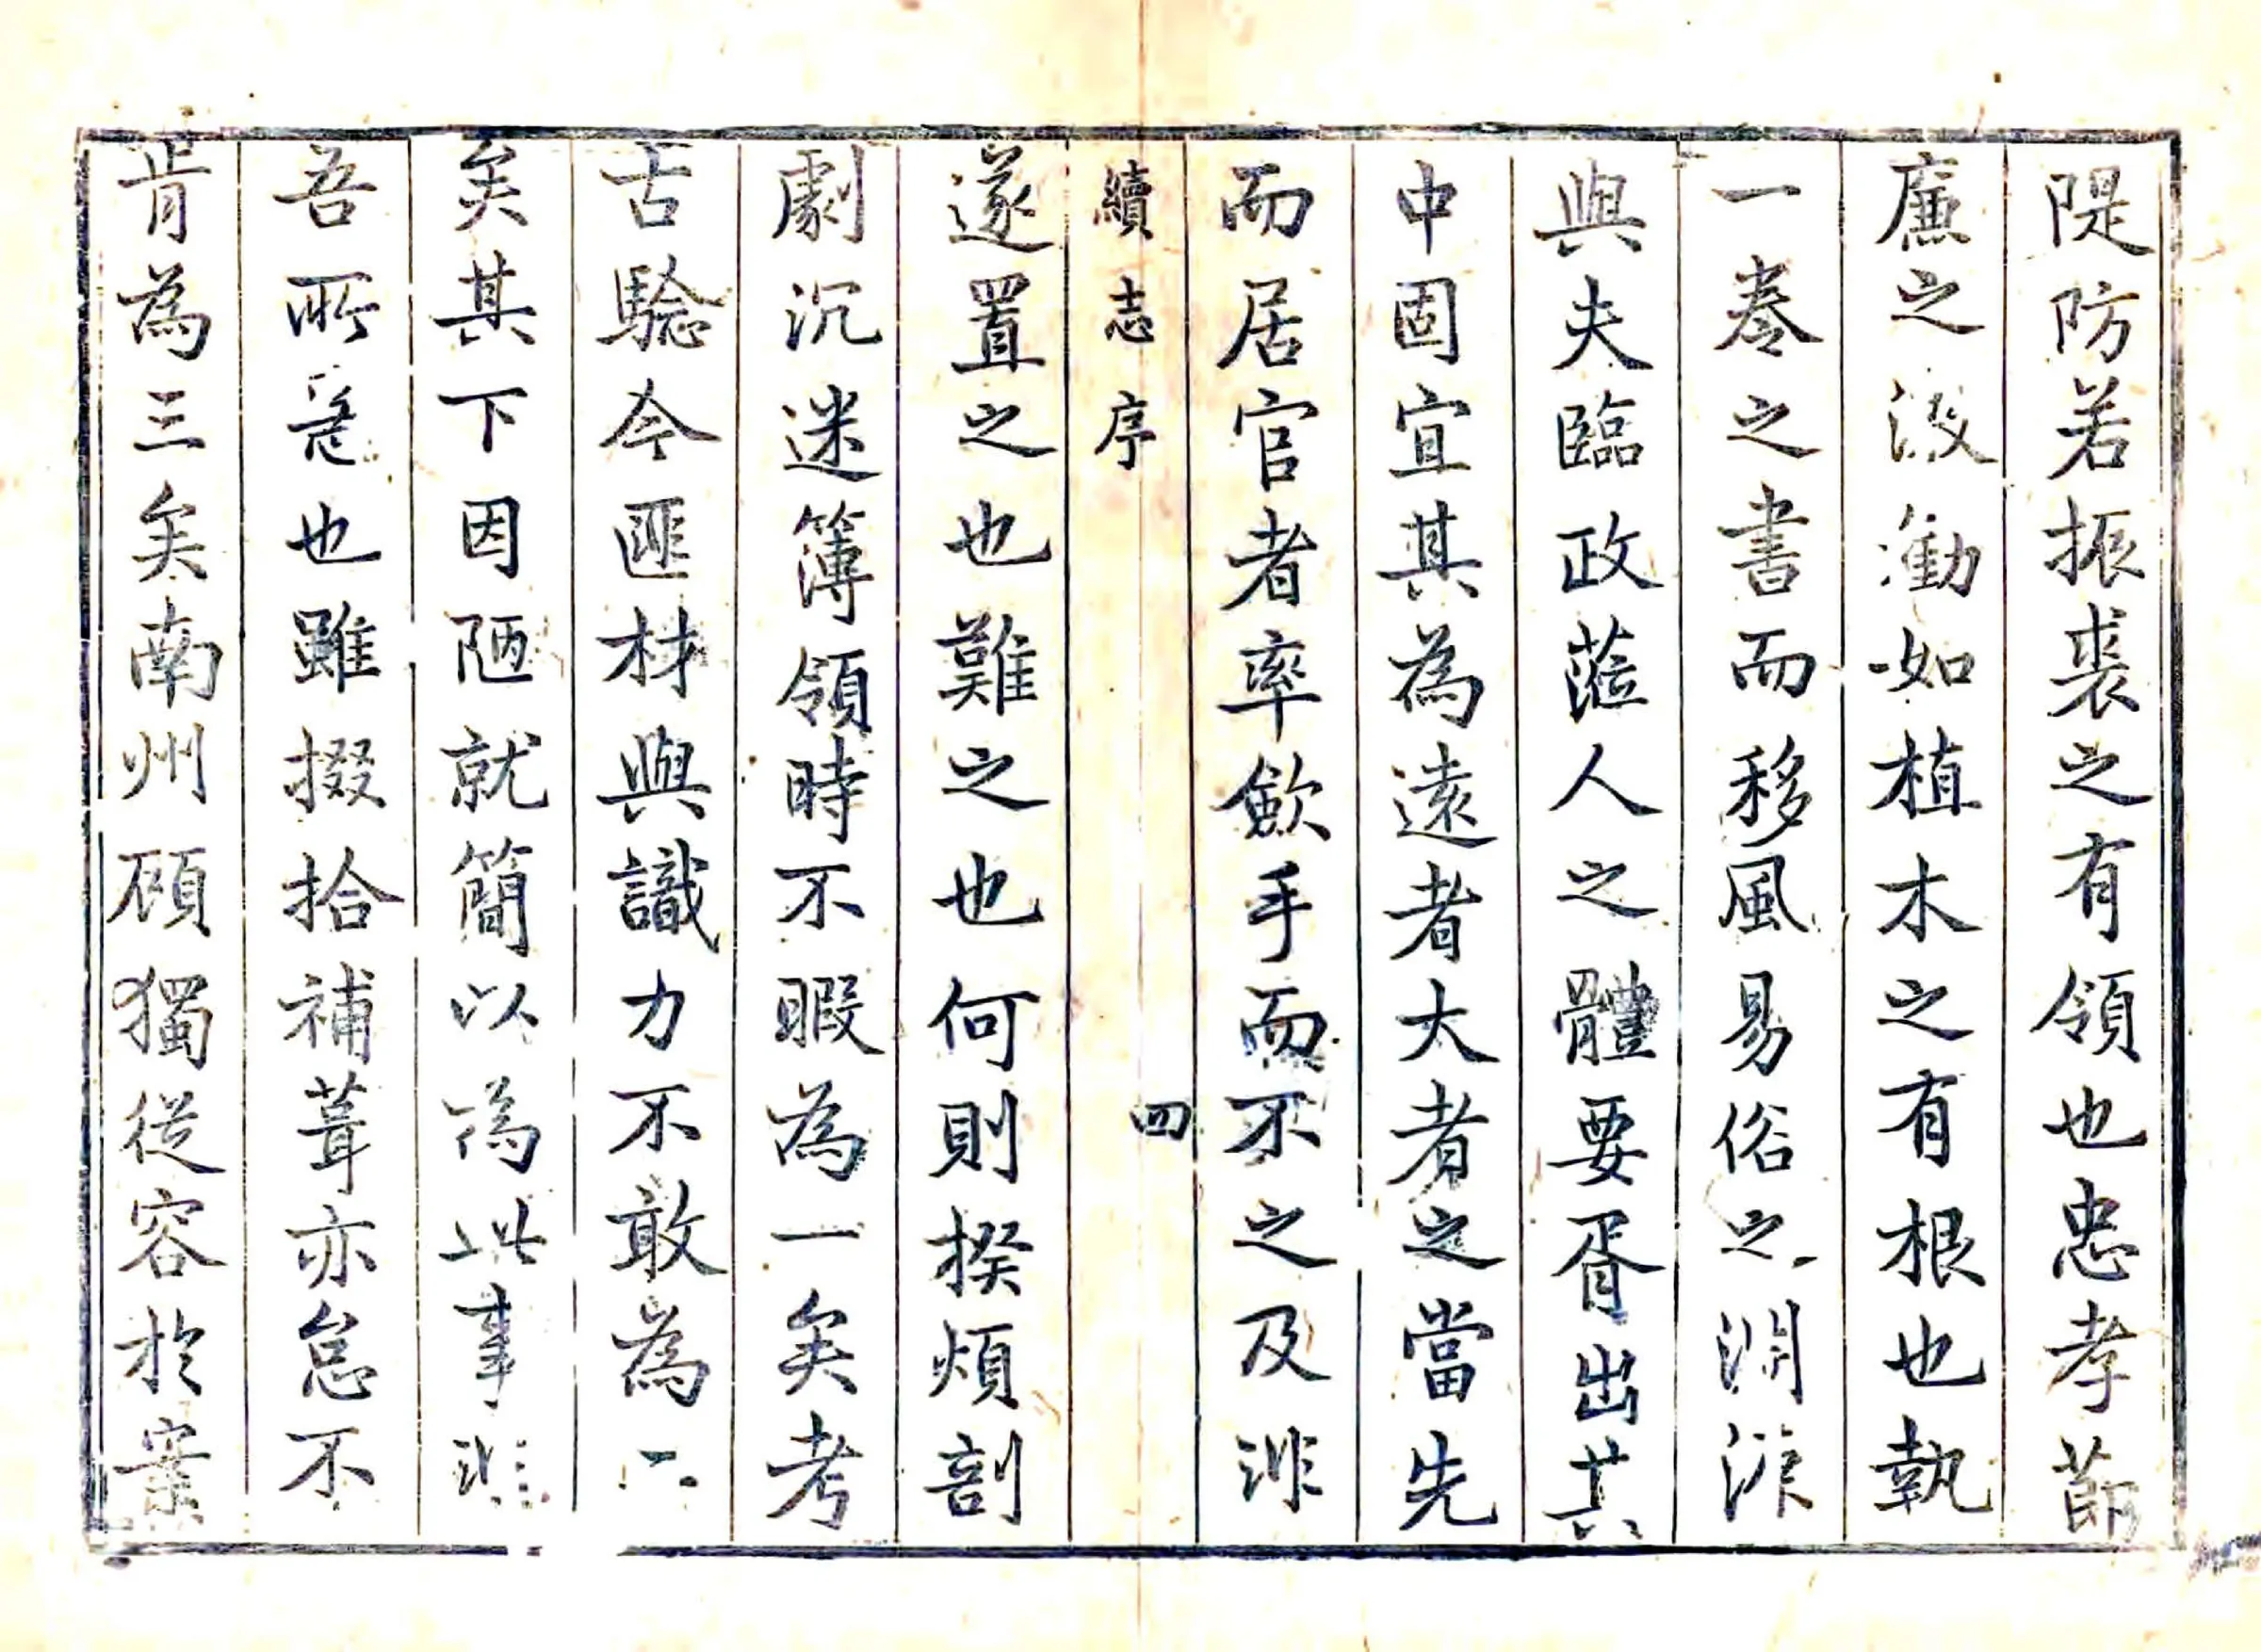 隄防若振裘之有領也忠孝節
廉之激勸如植木之有根也執
一卷之書而移風易俗之淵源
與夫臨政蒞人之體要胥出其
中固宜其為遠者大者之當先
而居官者率歛手而不之及非
續志序 四
遂置之也難之也何則揆煩剖
劇沉迷簿領時不暇為一矣考
古驗今匪材與識力不敢為二
矣其下因陋就簡以為此事非
吾所急也雖掇拾補葺亦怠不
肯為三矣南州顧獨從容於案